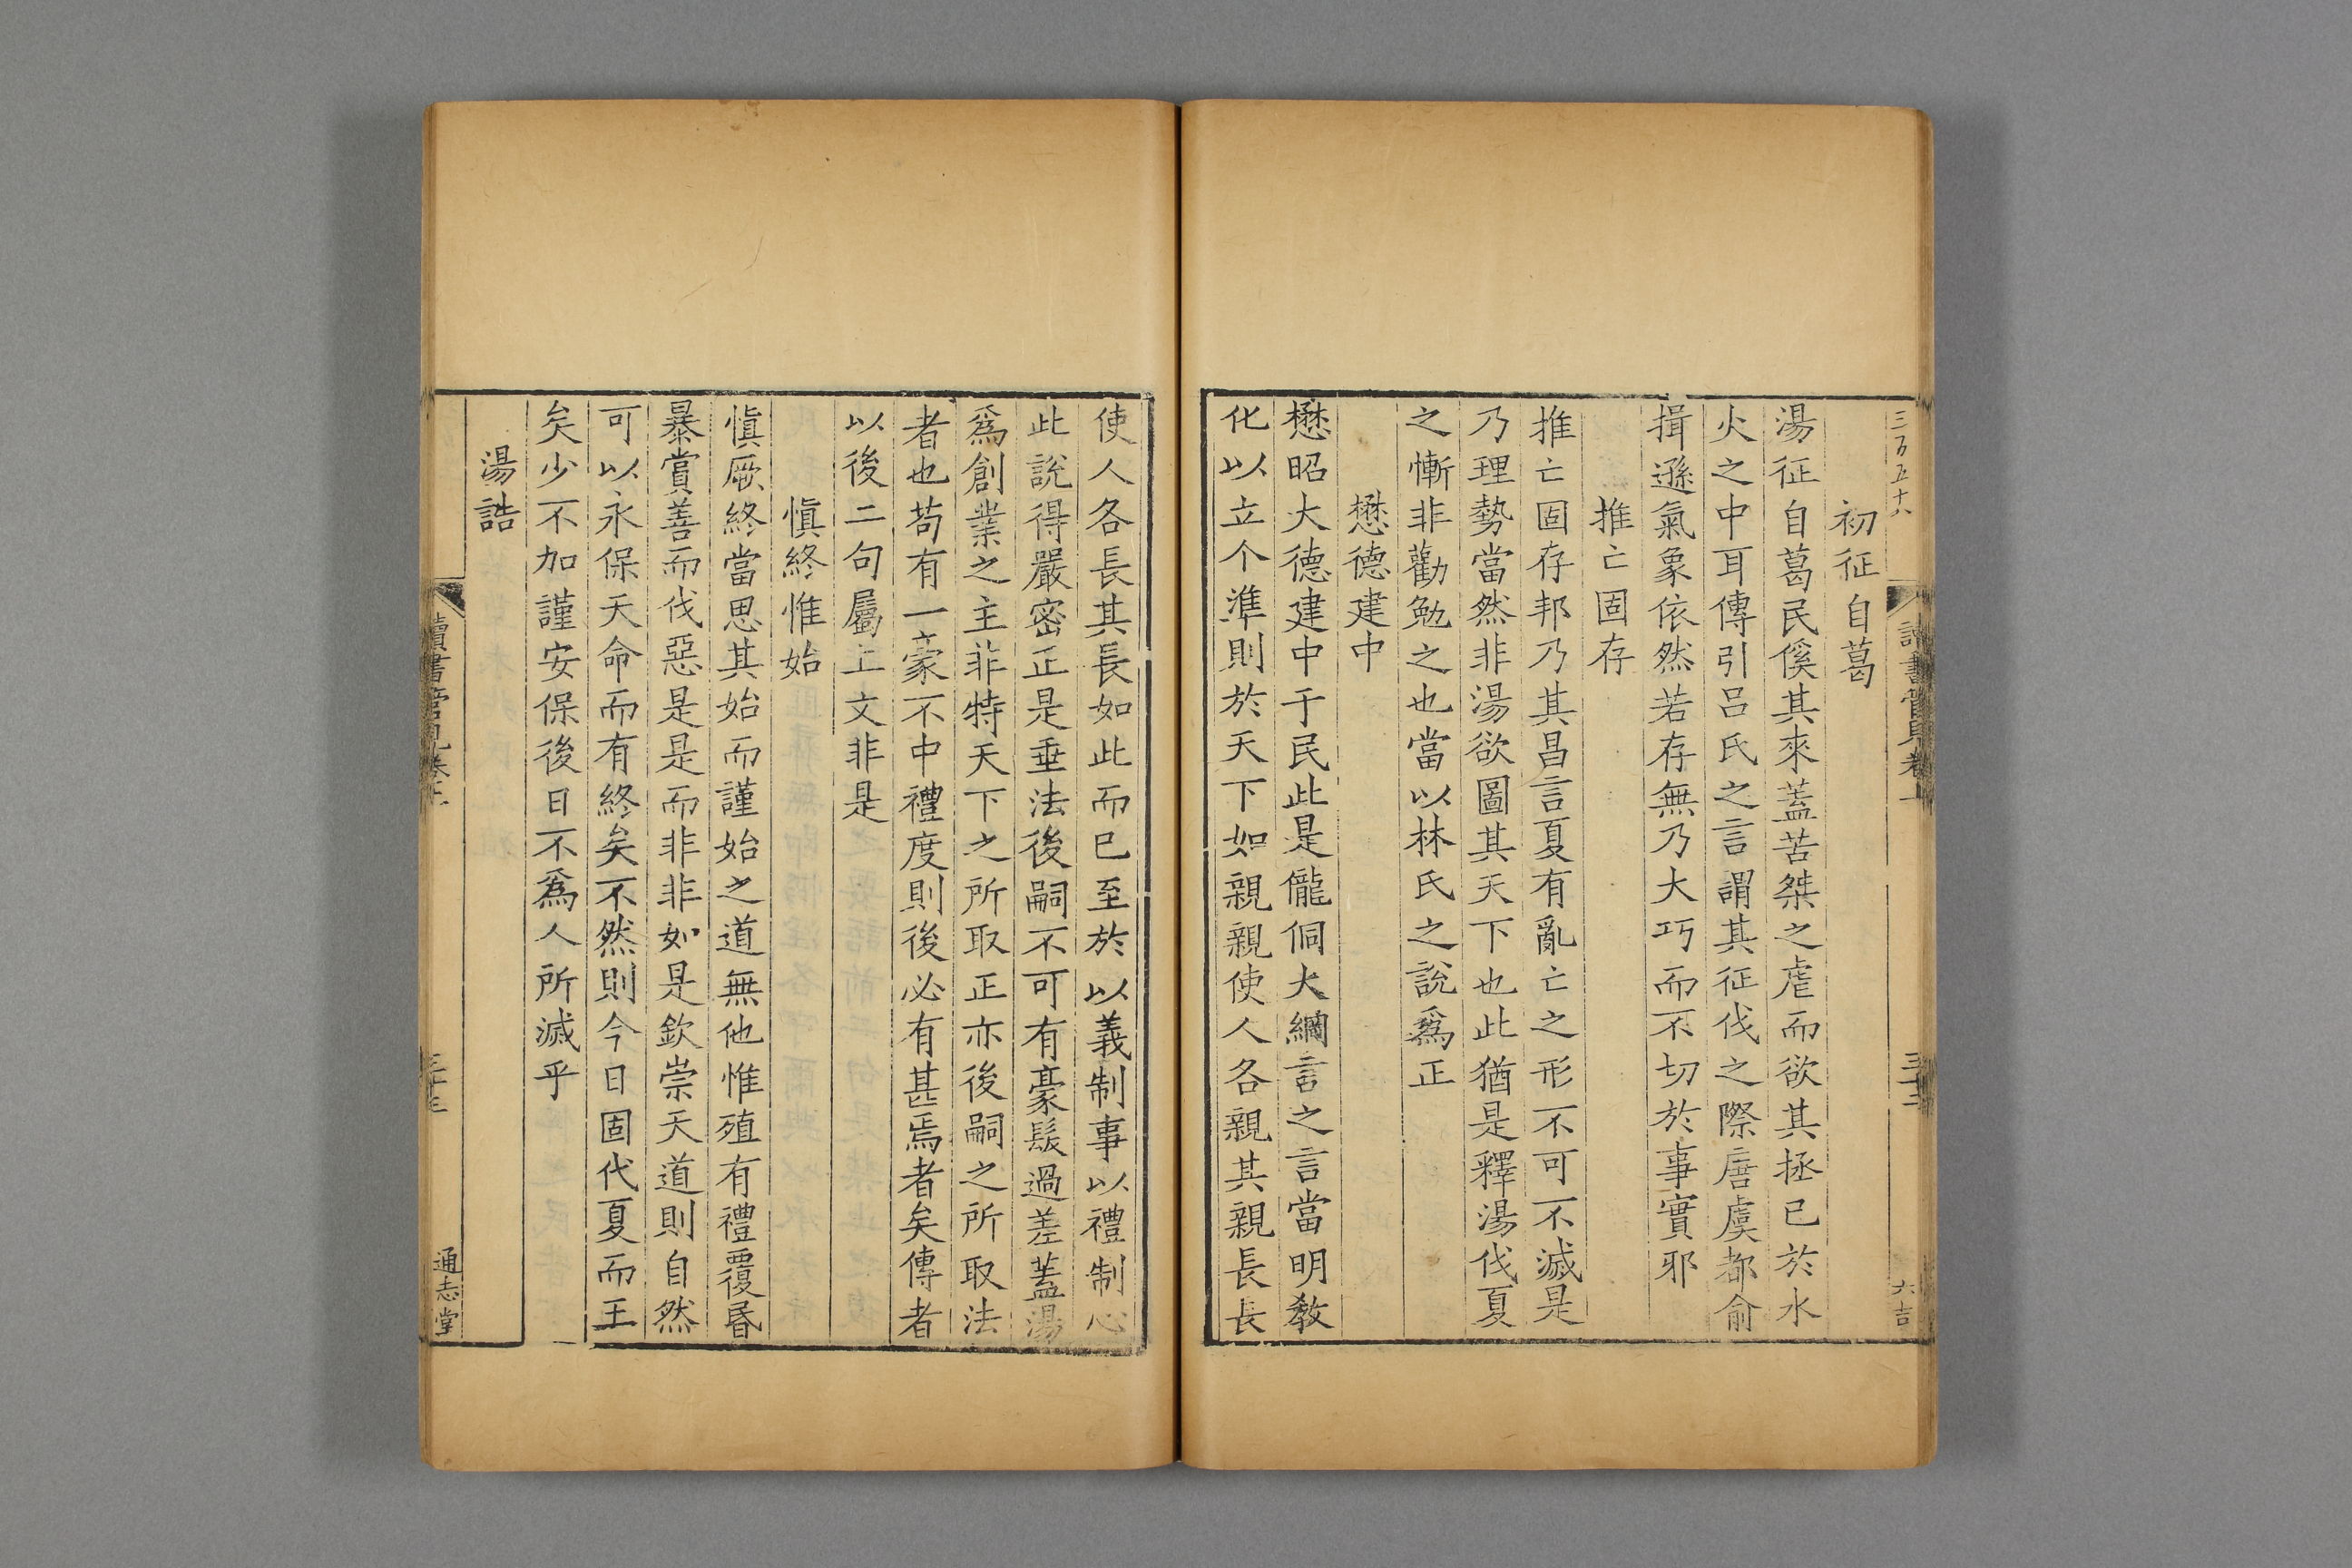 三百五十八
初征自葛
湯征自葛民徯其來蓋苦桀之虐而欲其拯已於水
火之中耳傳引呂氏之言謂其征伐之際唐虞都俞
揖遜氣象依然若存無乃大巧而不切於事實邪
推亡固存
推亡固存邦乃其昌言夏有亂亡之形不可不滅是
乃理勢當然非湯欲圖其天下也此猶是釋湯伐夏
之慚非勸勉之也當以林氏之說爲正
懋德建中
懋昭大德建中于民此是儱侗大綱言之言當明敎
化以立个準則於天下如親親使人各親其親長長
使人各長其長如此而已至於以義制事以禮制心
此說得嚴密正是垂法後嗣不可有豪髮過差蓋湯
爲創業之主非特天下之所取正亦後嗣之所取法
者也苟有一豪不中禮度則後必有甚焉者矣傳者
以後二句屬上文非是
愼終惟始
愼厥終當思其始而謹始之道無他惟殖有禮覆昬
暴賞善而伐惡是是而非非如是欽崇天道則自然
可以永保天命而有終矣不然則今日固代夏而王
矣少不加謹安保後日不爲人所滅乎
湯誥
讀書管見卷上
三十三
通志堂